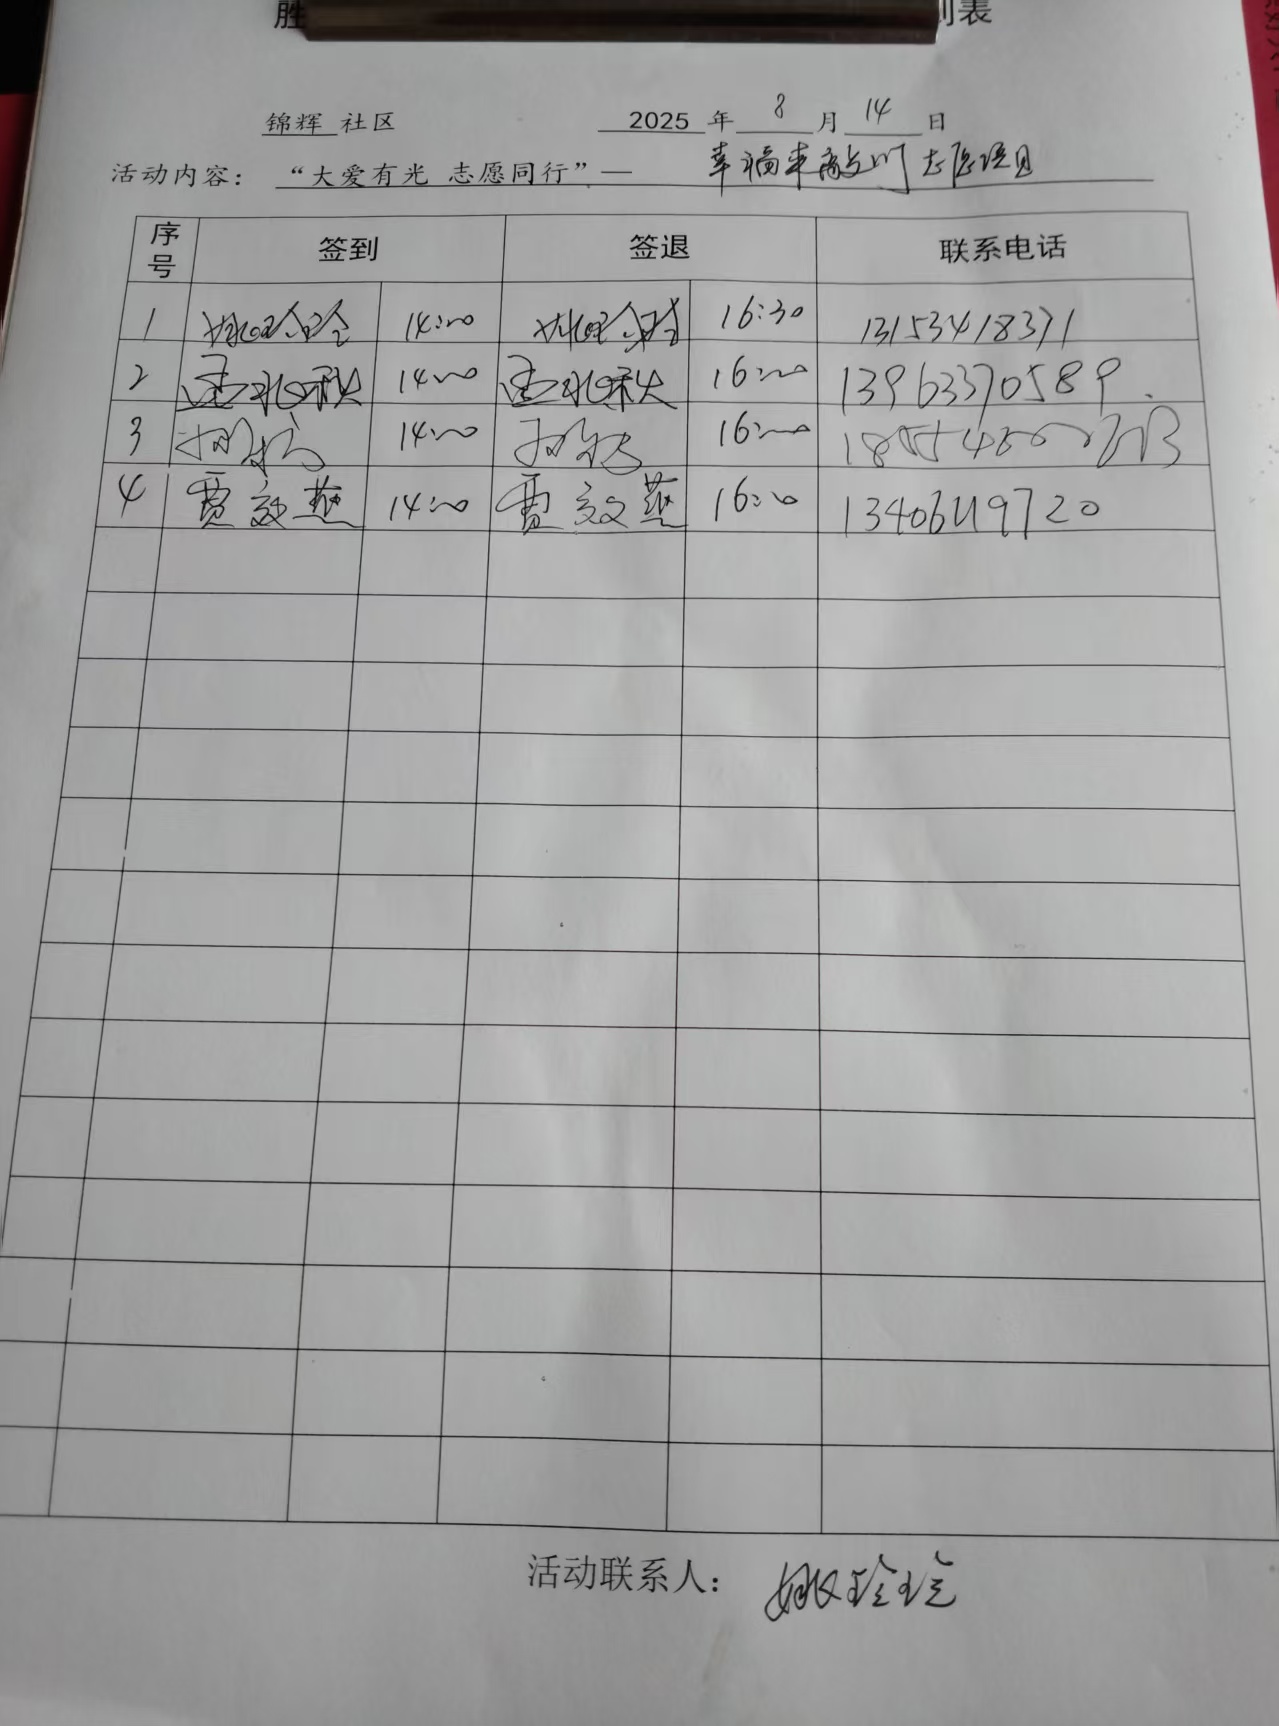 胜 到表
锦辉 社区 2025 年 8 月 14 日
活动内容： “大爱有光 志愿同行”— 幸福来敲门 志愿项目
序号 签到 签退 联系电话
1 姚玲玲 14:00 姚玲玲 16:30 13153418371
2 14:00 16:00 13963370589
3 14:00 16:00
4 贾效燕 14:00 贾效燕 16:00 13406419720
活动联系人： 姚玲玲